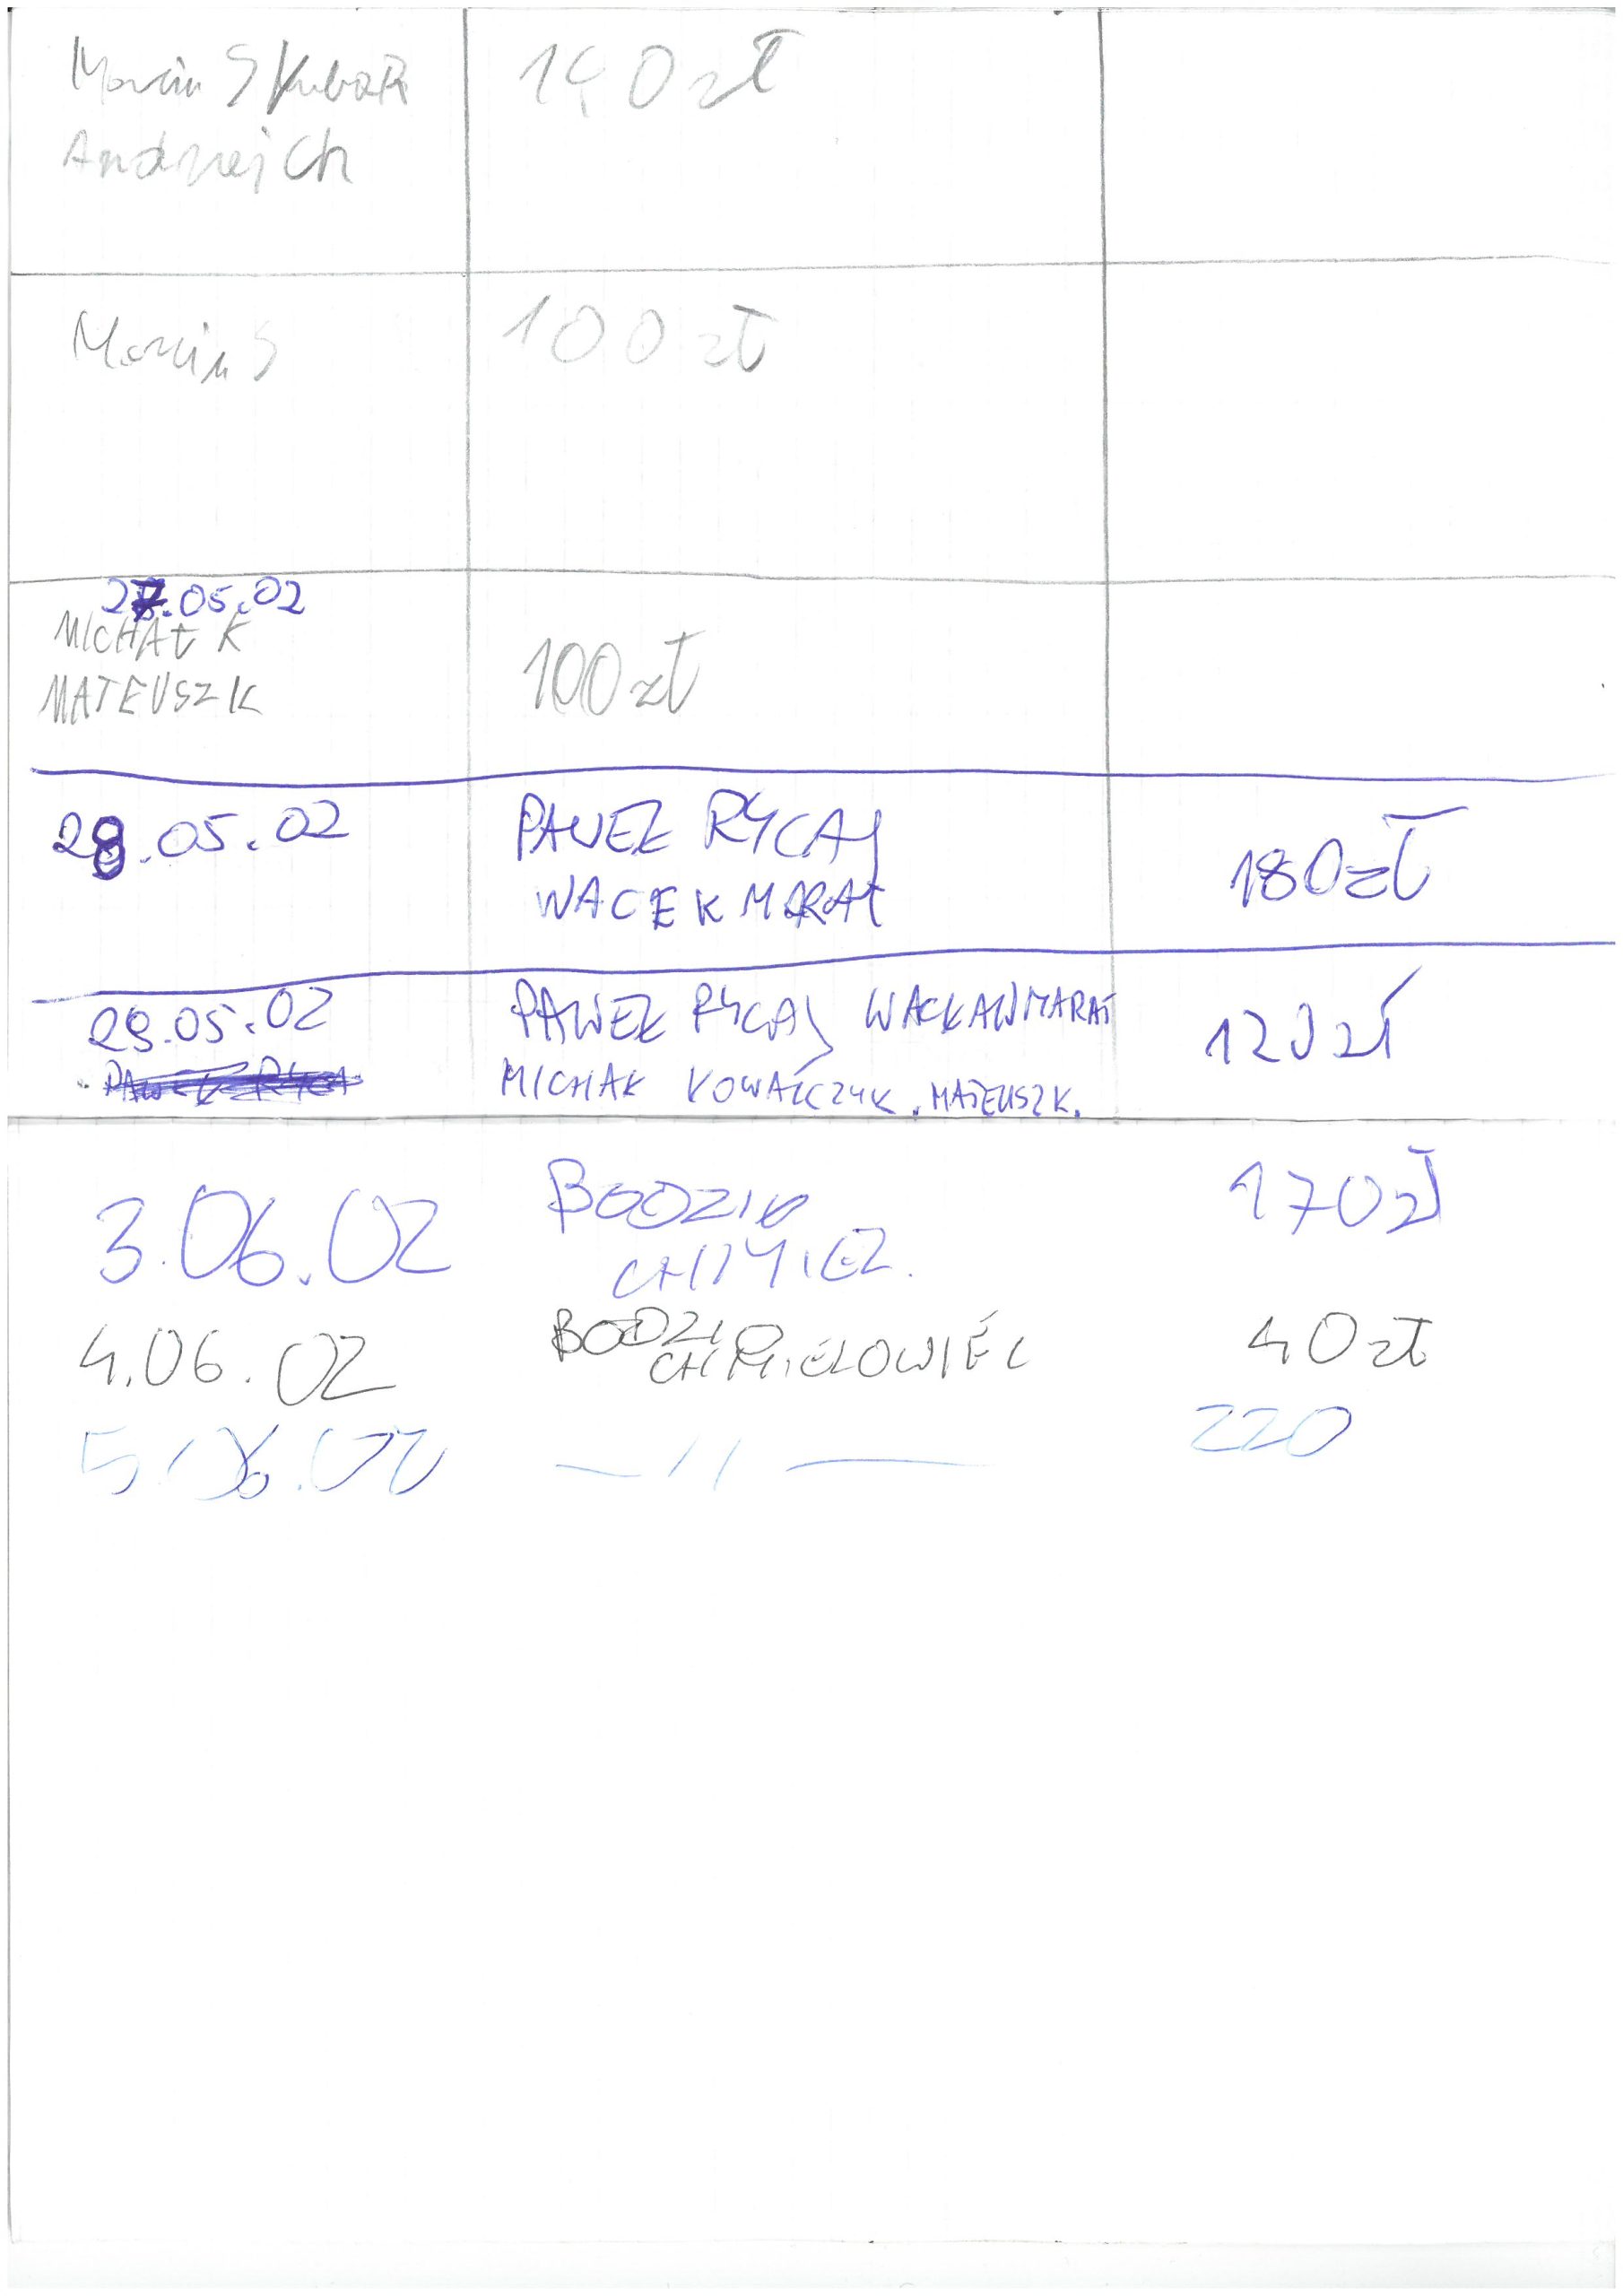 Marcin S Kuba R 140 zł
Andrzej Ch
Marcin S 100 zł
27.05.02
MICHAŁ K
MATEUSZ K 100 zł
28.05.02 PAWEŁ RYCAJ
WACEK MARAŚ 180 zł
29.05.02 PAWEŁ RYCAJ WACŁAW MARAŚ 120 zł
PAWEŁ RYCA MICHAŁ KOWALCZYK. MATEUSZ K.
3.06.02 BODZIO 170 zł
CHMIEL.
4.06.02 BODZIO 40 zł
CHMIELOWIEC
5.06.02 —//— 220